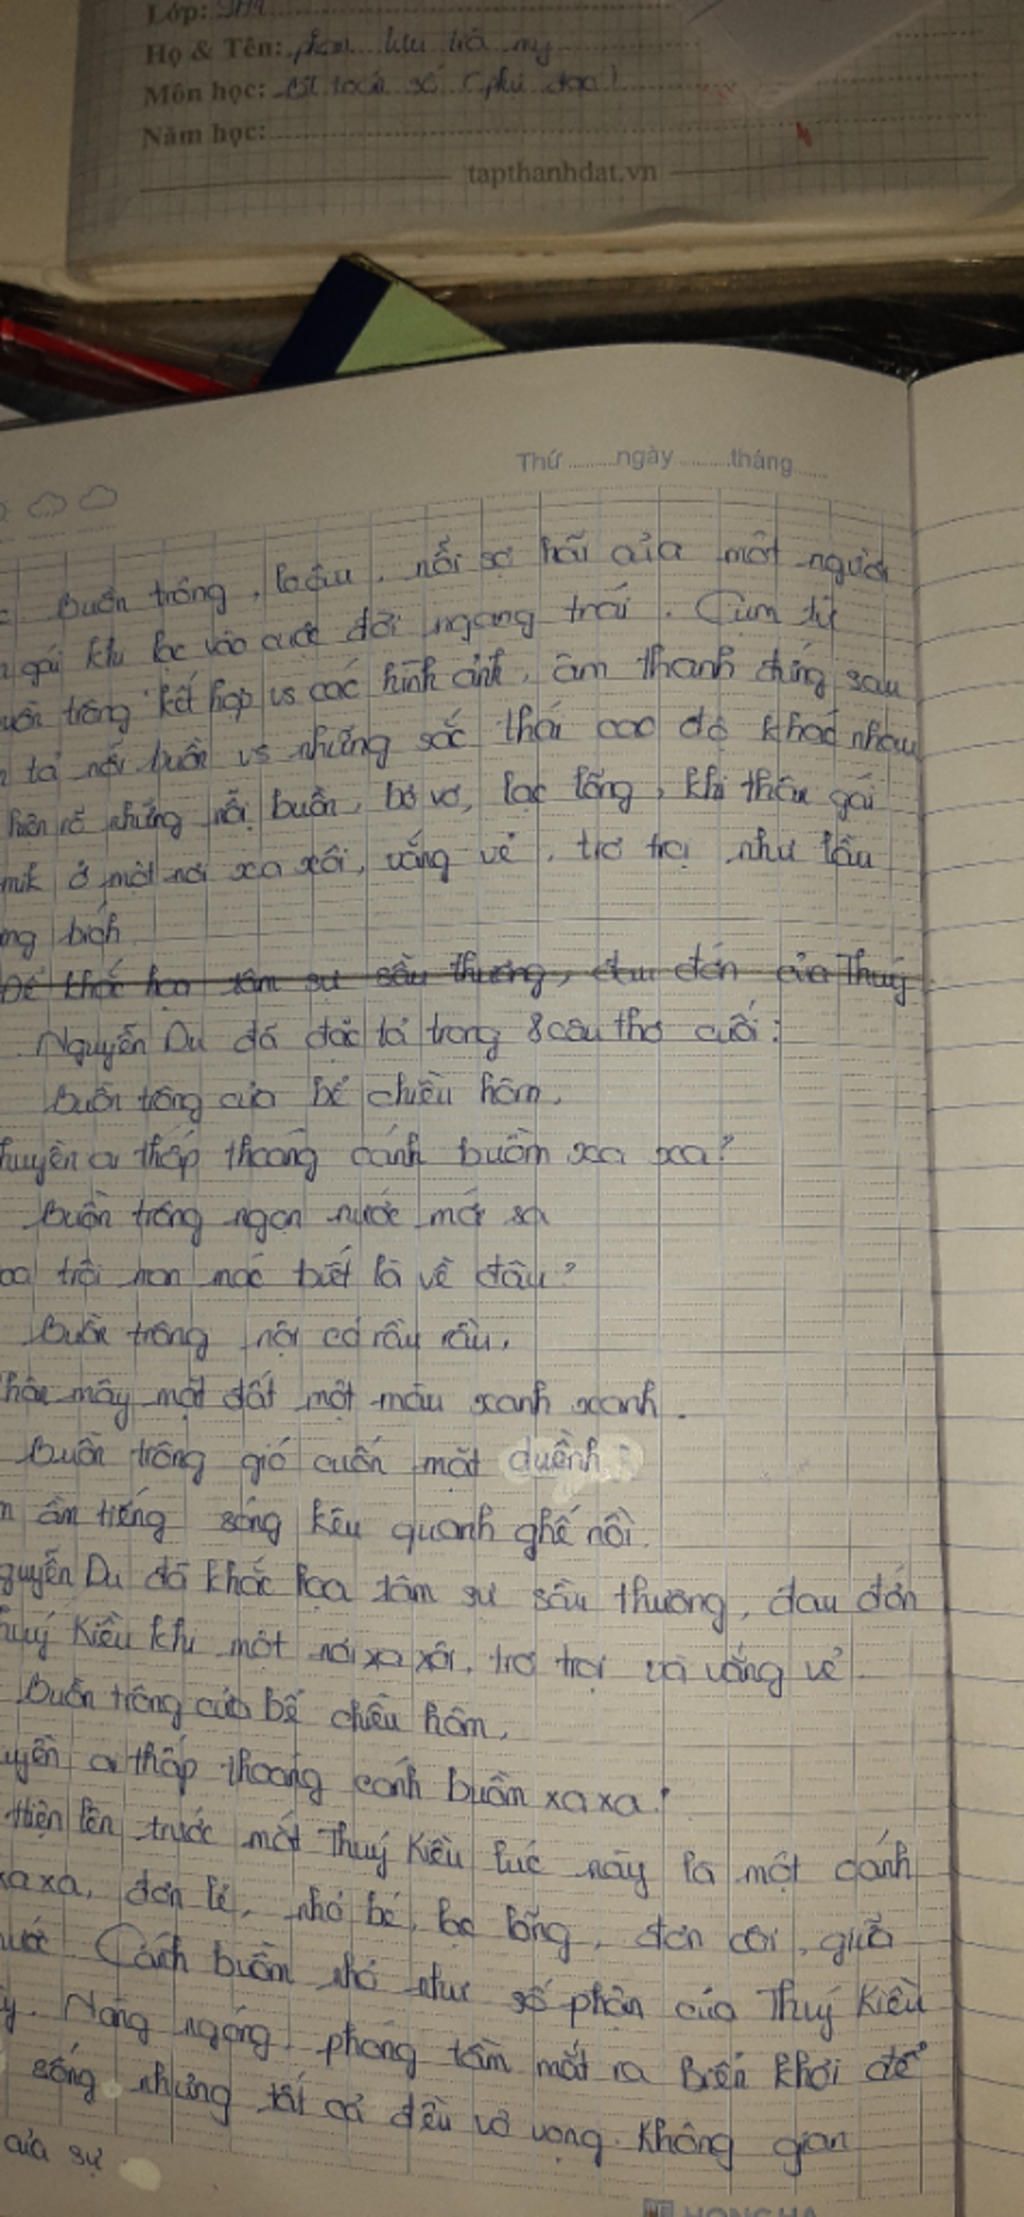 Lớp: 9A9
Họ & Tên: phạm lưu trà my
Môn học: toán số (phụ đạo)
Năm học:
tapthanhdat.vn
Thứ ngày tháng
buồn trông, lo âu, nỗi sợ hãi của một người
gái khi lạc vào cuộc đời ngang trái. Cụm từ
trông kết hợp vs các hình ảnh, âm thanh đứng sau
tả nỗi buồn vs những sắc thái cao độ khác nhau
hiện rõ những nỗi buồn, bơ vơ, lạc lõng, khi thân gái
mình ở một nơi xa xôi, vắng vẻ, trơ trọi như lầu
bích
Để khắc họa tâm sự sầu thương, đau đớn của Thuý
Nguyễn Du đã đặc tả trong 8 câu thơ cuối:
Buồn trông cửa bể chiều hôm,
thuyền ai thấp thoáng cánh buồm xa xa?
Buồn trông ngọn nước mới sa
trôi man mác biết là về đâu?
Buồn trông nội cỏ rầu rầu,
chân mây mặt đất một màu xanh xanh.
Buồn trông gió cuốn mặt duềnh;
ầm tiếng sóng kêu quanh ghế nồi.
guyễn Du đã khắc họa tâm sự sầu thương, đau đớn
huý Kiều khi một nơi xa xôi, trơ trọi và vắng vẻ
Buồn trông cửa bể chiều hôm,
uyền ai thấp thoáng cánh buồm xa xa?
Hiện lên trước mắt Thuý Kiều lúc này là một cánh
xa xa, đơn lẻ, nhỏ bé, lạc lõng, đơn côi, giữa
nước. Cánh buồm nhỏ như số phận của Thuý Kiều
y. Nàng ngóng phóng tầm mắt ra biển khơi để
sống nhưng tất cả đều vô vọng. Không gian
của sự
HONG HA